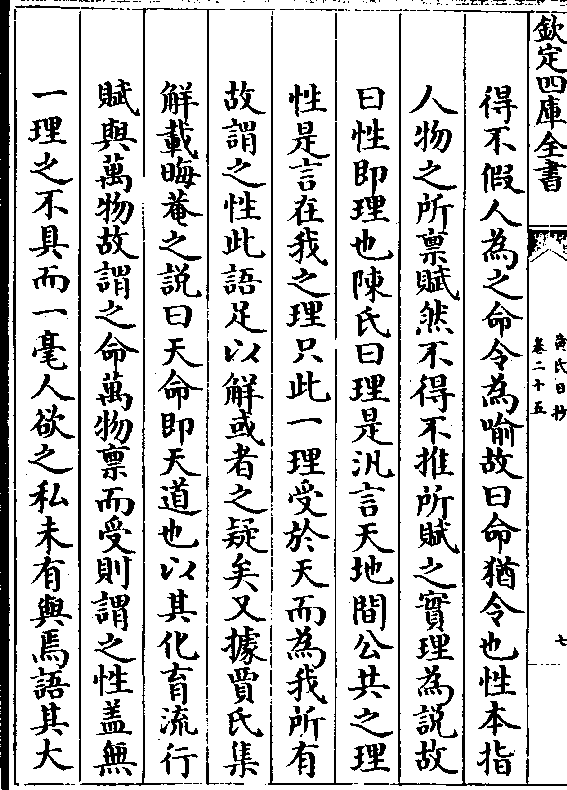 欽定四庫全書
黃氏日抄
卷二十五
七
得不假人為之命令為喻故曰命猶令也性本指
人物之所禀賦然不得不推所賦之實理為說故
曰性即理也陳氏曰理是汎言天地間公共之理
性是言在我之理只此一理受於天而為我所有
故謂之性此語足以解或者之疑矣又據賈氏集
解載晦菴之說曰天命即天道也以其化育流行
賦與萬物故謂之命萬物禀而受則謂之性盖無
一理之不具而一毫人欲之私未有與焉語其大